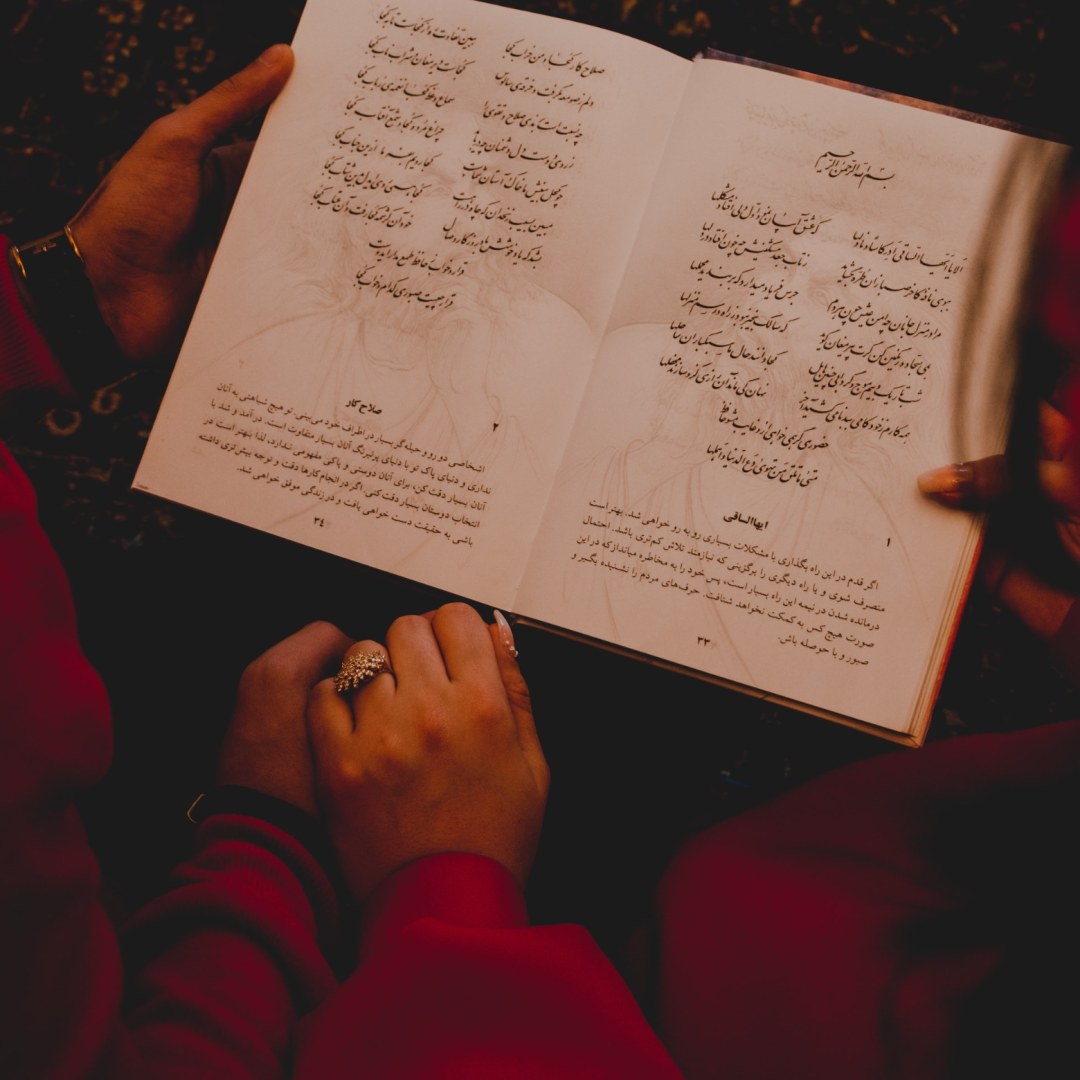 بسم الله الرحمن الرحیم
الا یا ایها الساقی ادر کاسا و ناولها که عشق آسان نمود اول ولی افتاد مشکلها
ببوی نافه کاخر صبا زان طره بگشاید ز تاب جعد مشکینش چه خون افتاد در دلها
مرا در منزل جانان چه امن عیش چون هر دم جرس فریاد میدارد که بربندید محملها
بمی سجاده رنگین کن گرت پیر مغان گوید که سالک بیخبر نبود ز راه و رسم منزلها
شب تاریک و بیم موج و گردابی چنین هایل کجا دانند حال ما سبکباران ساحلها
همه کارم ز خود کامی ببدنامی کشید آخر نهان کی ماند آن رازی کزو سازند محفلها
حضوری گر همی خواهی ازو غایب مشو حافظ
متی ما تلق من تهوی دع الدنیا و اهملها
۱
ایهاالساقی
اگر قدم در این راه بگذاری با مشکلات بسیاری رو به رو خواهی شد. بهتر است
منصرف شوی و یا راه دیگری را برگزینی که نیازمند تلاش کم‌تری باشد. احتمال
درمانده شدن در نیمه این راه بسیار است، پس خود را به مخاطره میانداز که در این
صورت هیچ کس به کمکت نخواهد شتافت. حرف‌های مردم را نشنیده بگیر و
صبور و با حوصله باش.
۳۳
صلاح کار کجا و من خراب کجا ببین تفاوت ره از کجاست تا بکجا
دلم ز صومعه بگرفت و خرقه سالوس کجاست دیر مغان و شراب ناب کجا
چه نسبت است برندی صلاح و تقوی را سماع وعظ کجا نغمه رباب کجا
ز روی دوست دل دشمنان چه دریابد چراغ مرده کجا و شمع آفتاب کجا
چو کحل بینش ما خاک آستان شماست کجا رویم بفرما ازین جناب کجا
مبین بسیب زنخدان که چاه در راهست کجا همی روی ای دل بدین شتاب کجا
بشد که یاد خوشش باد روزگار وصال خود آن کرشمه کجا رفت و آن عتاب کجا
قرار و خواب ز حافظ طمع مدار ایدوست
قرار چیست صبوری کدام و خواب کجا
۲
صلاح کار
اشخاصی دو رو و حیله گر بسیار در اطراف خود می‌بینی. تو هیچ شباهتی به آنان
نداری و دنیای پاک تو با دنیای پرنیرنگ آنان بسیار متفاوت است. در آمد و شد با
آنان بسیار دقت کن، برای آنان دوستی و پاکی مفهومی ندارد، لذا بهتر است در
انتخاب دوستان بسیار دقت کنی. اگر در انجام کارها دقت و توجه بیش‌تری داشته
باشی به حقیقت دست خواهی یافت و در زندگی موفق خواهی شد.
۳٤